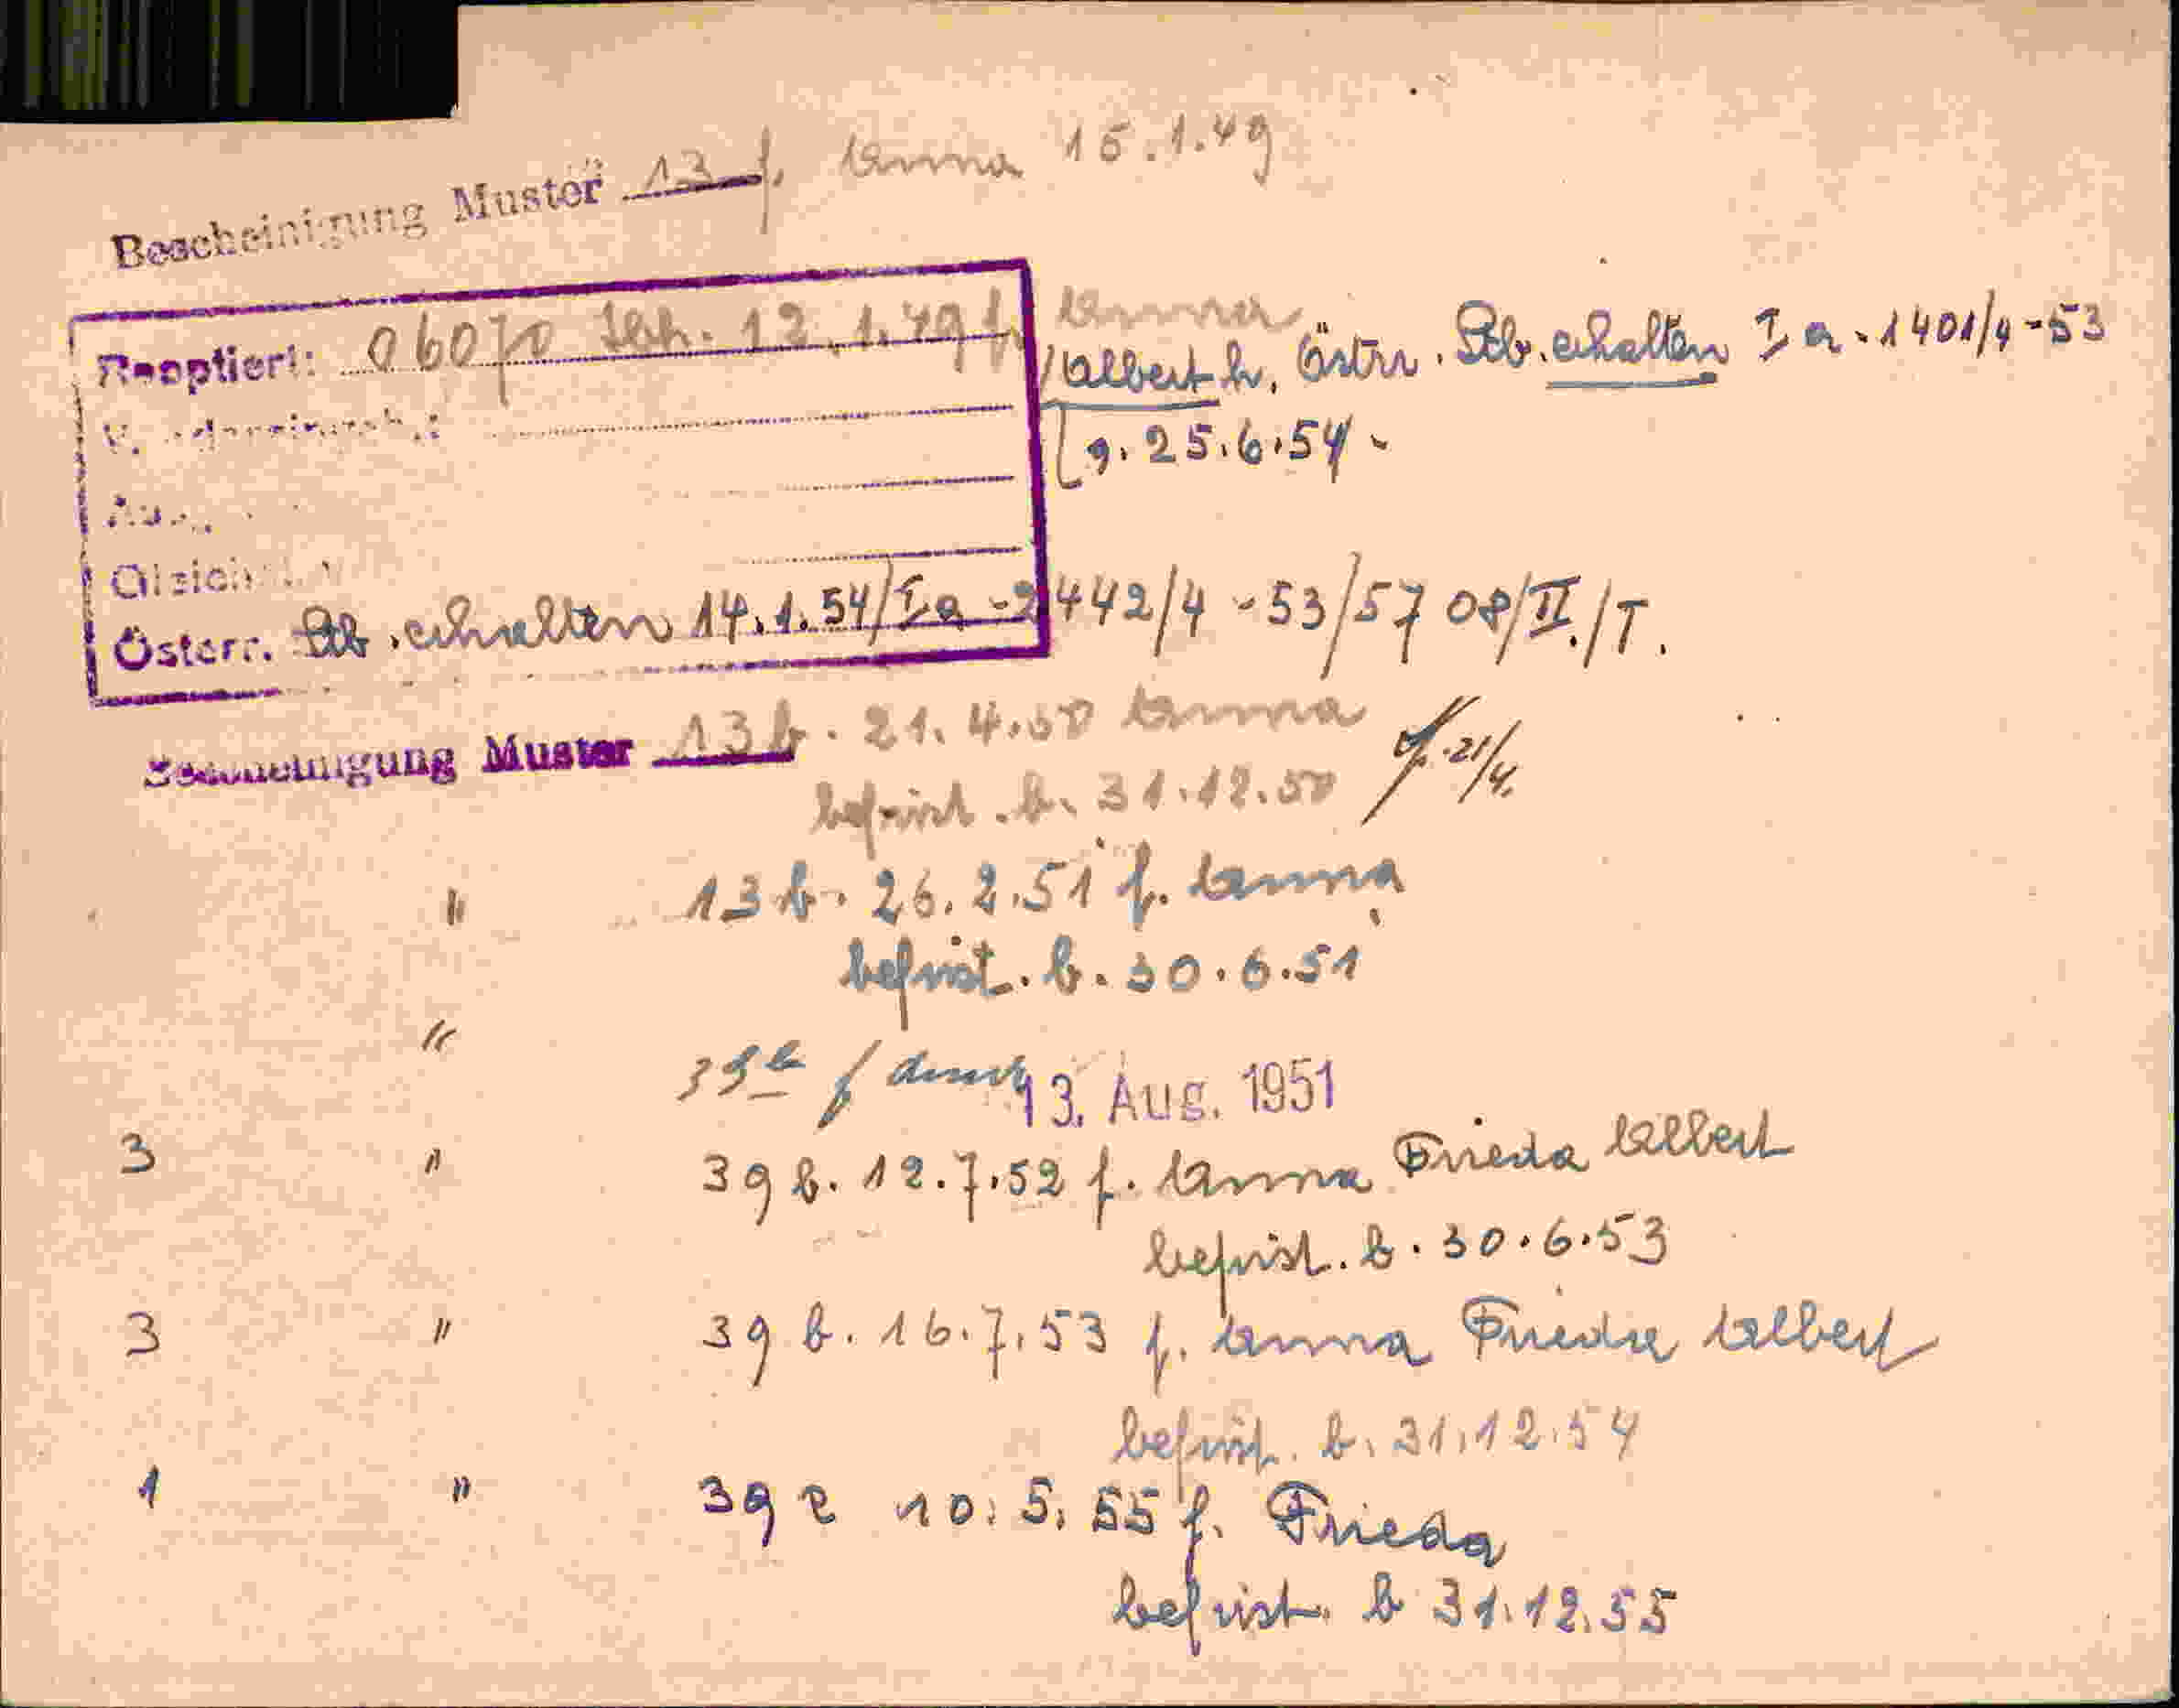 Bescheinigung Muster 13 f. Anna 15.1.49
Reoptiert: 06070 12.1.49 f. Anna
Albert h. Östrr. Stb. erhalten I a - 1401/4 - 53
g. 25.6.54 -
Österr. Stb. erhalten 14.1.54/I a - 2442/4 - 53/57 08/II./T.
Bescheinigung Muster 13 b. 21.4.50 Anna
21/4.
befrist. b. 31.12.50
" 13 b. 26.2.51 f. Anna
befrist. b. 30.6.51
" f Anna 13. Aug. 1951
3 " 39 b. 12.7.52 f. Anna Frieda Albert
befrist. b. 30.6.53
3 " 39 b. 16.7.53 f. Anna Frieda Albert
befrist. b. 31.12.54
1 " 39 10.5.55 f. Frieda
befrist. b 31.12.55